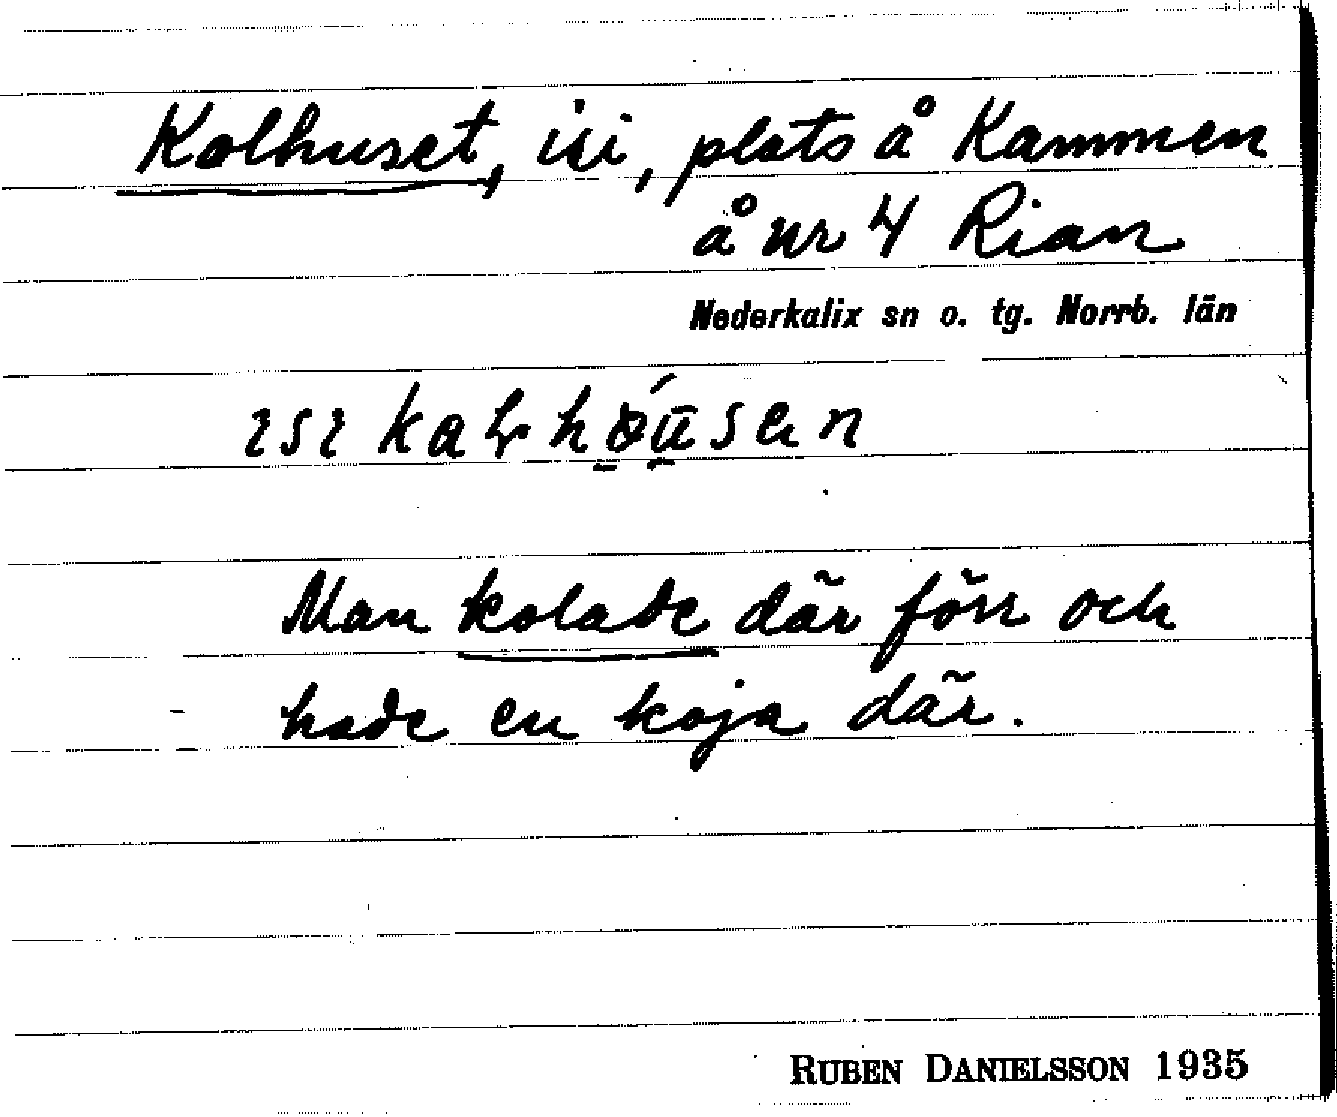 Kolhuset, isi, plats å Kammen
å nr 4 Rian
Nederkalix sn o. tg. Norrb. län
Man kolade där förr och
hade en koja där.
RUBEN DANIELSSON 1935